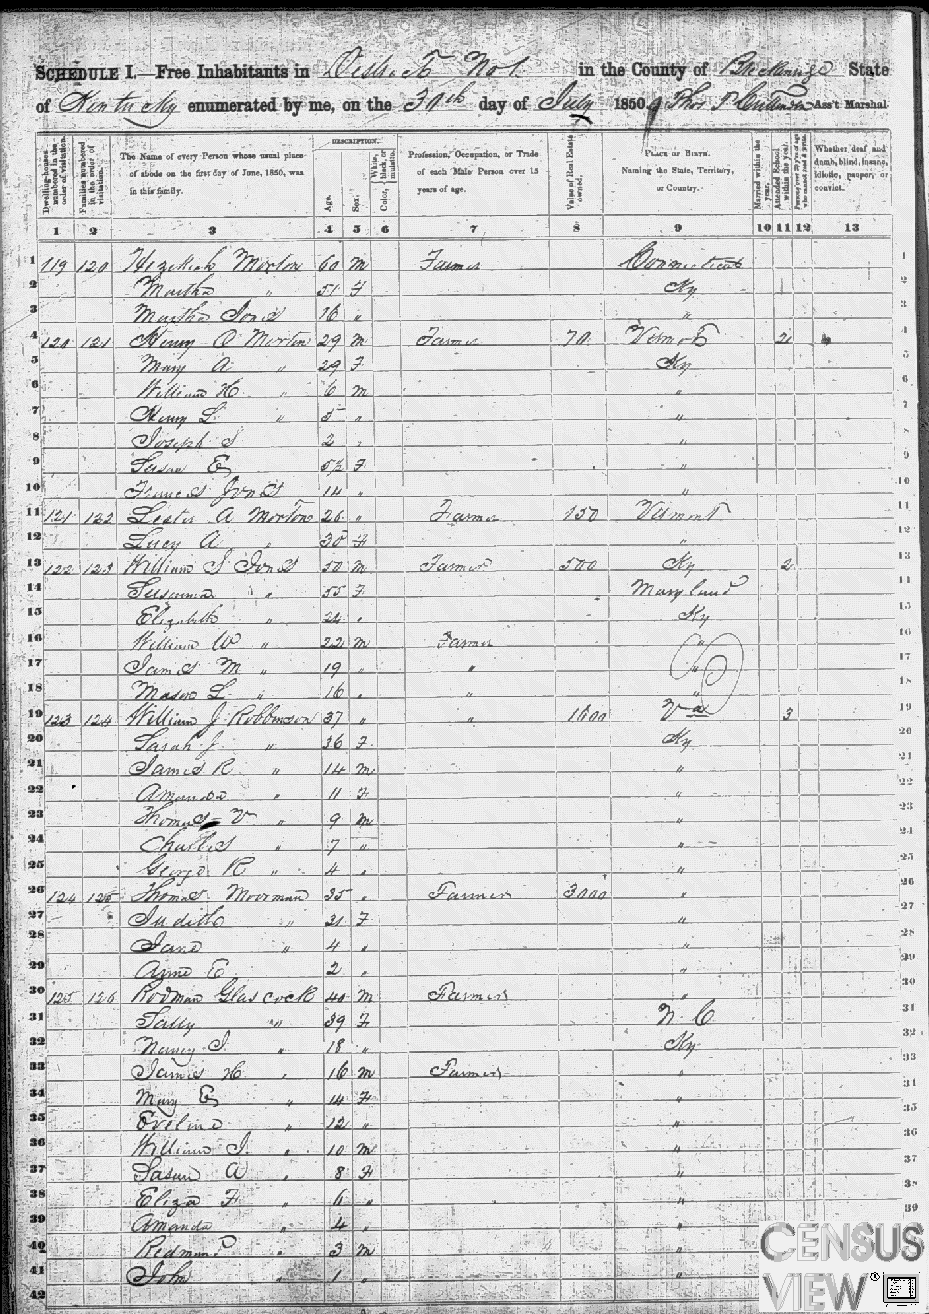 SCHEDULE I.—Free Inhabitants in District No 1. in the County of Breckenridge State
of Kentucky enumerated by me, on the 30th day of July 1850. Thos J. Ass't Marshal
Dwelling-houses numbered in the order of visitation.
Families numbered in the order of visitation.
The Name of every Person whose usual place of abode on the first day of June, 1850, was in this family.
DESCRIPTION.
Age.
Sex.
Color, White, black, or mulatto.
Profession, Occupation, or Trade of each Male Person over 15 years of age.
Value of Real Estate owned.
PLACE OF BIRTH. Naming the State, Territory, or Country.
Married within the year.
Attended School within the year.
Persons over 20 y'rs of age who cannot read & write.
Whether deaf and dumb, blind, insane, idiotic, pauper, or convict.
1 2 3 4 5 6 7 8 9 10 11 12 13
1 119 120 Hezekiah Morton 60 M Farmer Connecticut 1
2 Martha " 51 F Ky 2
3 Martha Jones 16 " " 3
4 120 121 Henry O Morton 29 M Farmer 70 Vermont 2 4
5 Mary A " 29 F Ky 5
6 William H " 6 M " 6
7 Henry L " 5 " " 7
8 Joseph S 2 " " 8
9 Susan E 52 F " 9
10 Frances Jones 14 " " 10
11 121 122 Lester A Morton 26 " Farmer 150 Vermont 11
12 Lucy A " 35 F " 12
13 122 123 William S Jones 50 M Farmer 500 Ky 2 13
14 Susanna " 55 F Maryland 14
15 Elizabeth " 24 " Ky 15
16 William W " 22 M Farmer " 16
17 James M " 19 " " " 17
18 Mason L " 16 " " " 18
19 123 124 William J Robbinson 37 " " 1600 Va 3 19
20 Sarah J " 36 F Ky 20
21 James R " 14 M " 21
22 Amanda " 11 F " 22
23 Thomas V " 9 M " 23
24 Charles " 7 " " 24
25 George R " 4 " " 25
26 124 125 Thomas Moorman 35 " Farmer 3000 " 26
27 Judith " 31 F " 27
28 Jane " 4 " " 28
29 Anne E 2 " " 29
30 125 126 Rodman Glascock 40 M Farmer " 30
31 Sally " 39 F N. C 31
32 Nancy J. " 18 " Ky 32
33 James H " 16 M Farmer " 33
34 Mary E " 14 F " 34
35 Eveline " 12 " " 35
36 William J. " 10 M " 36
37 Susan A " 8 F " 37
38 Eliza F " 6 " " 38
39 Amanda " 4 " " 39
40 Redmond " 3 M "
41 John " 1 " "
42
CENSUS
VIEW ®